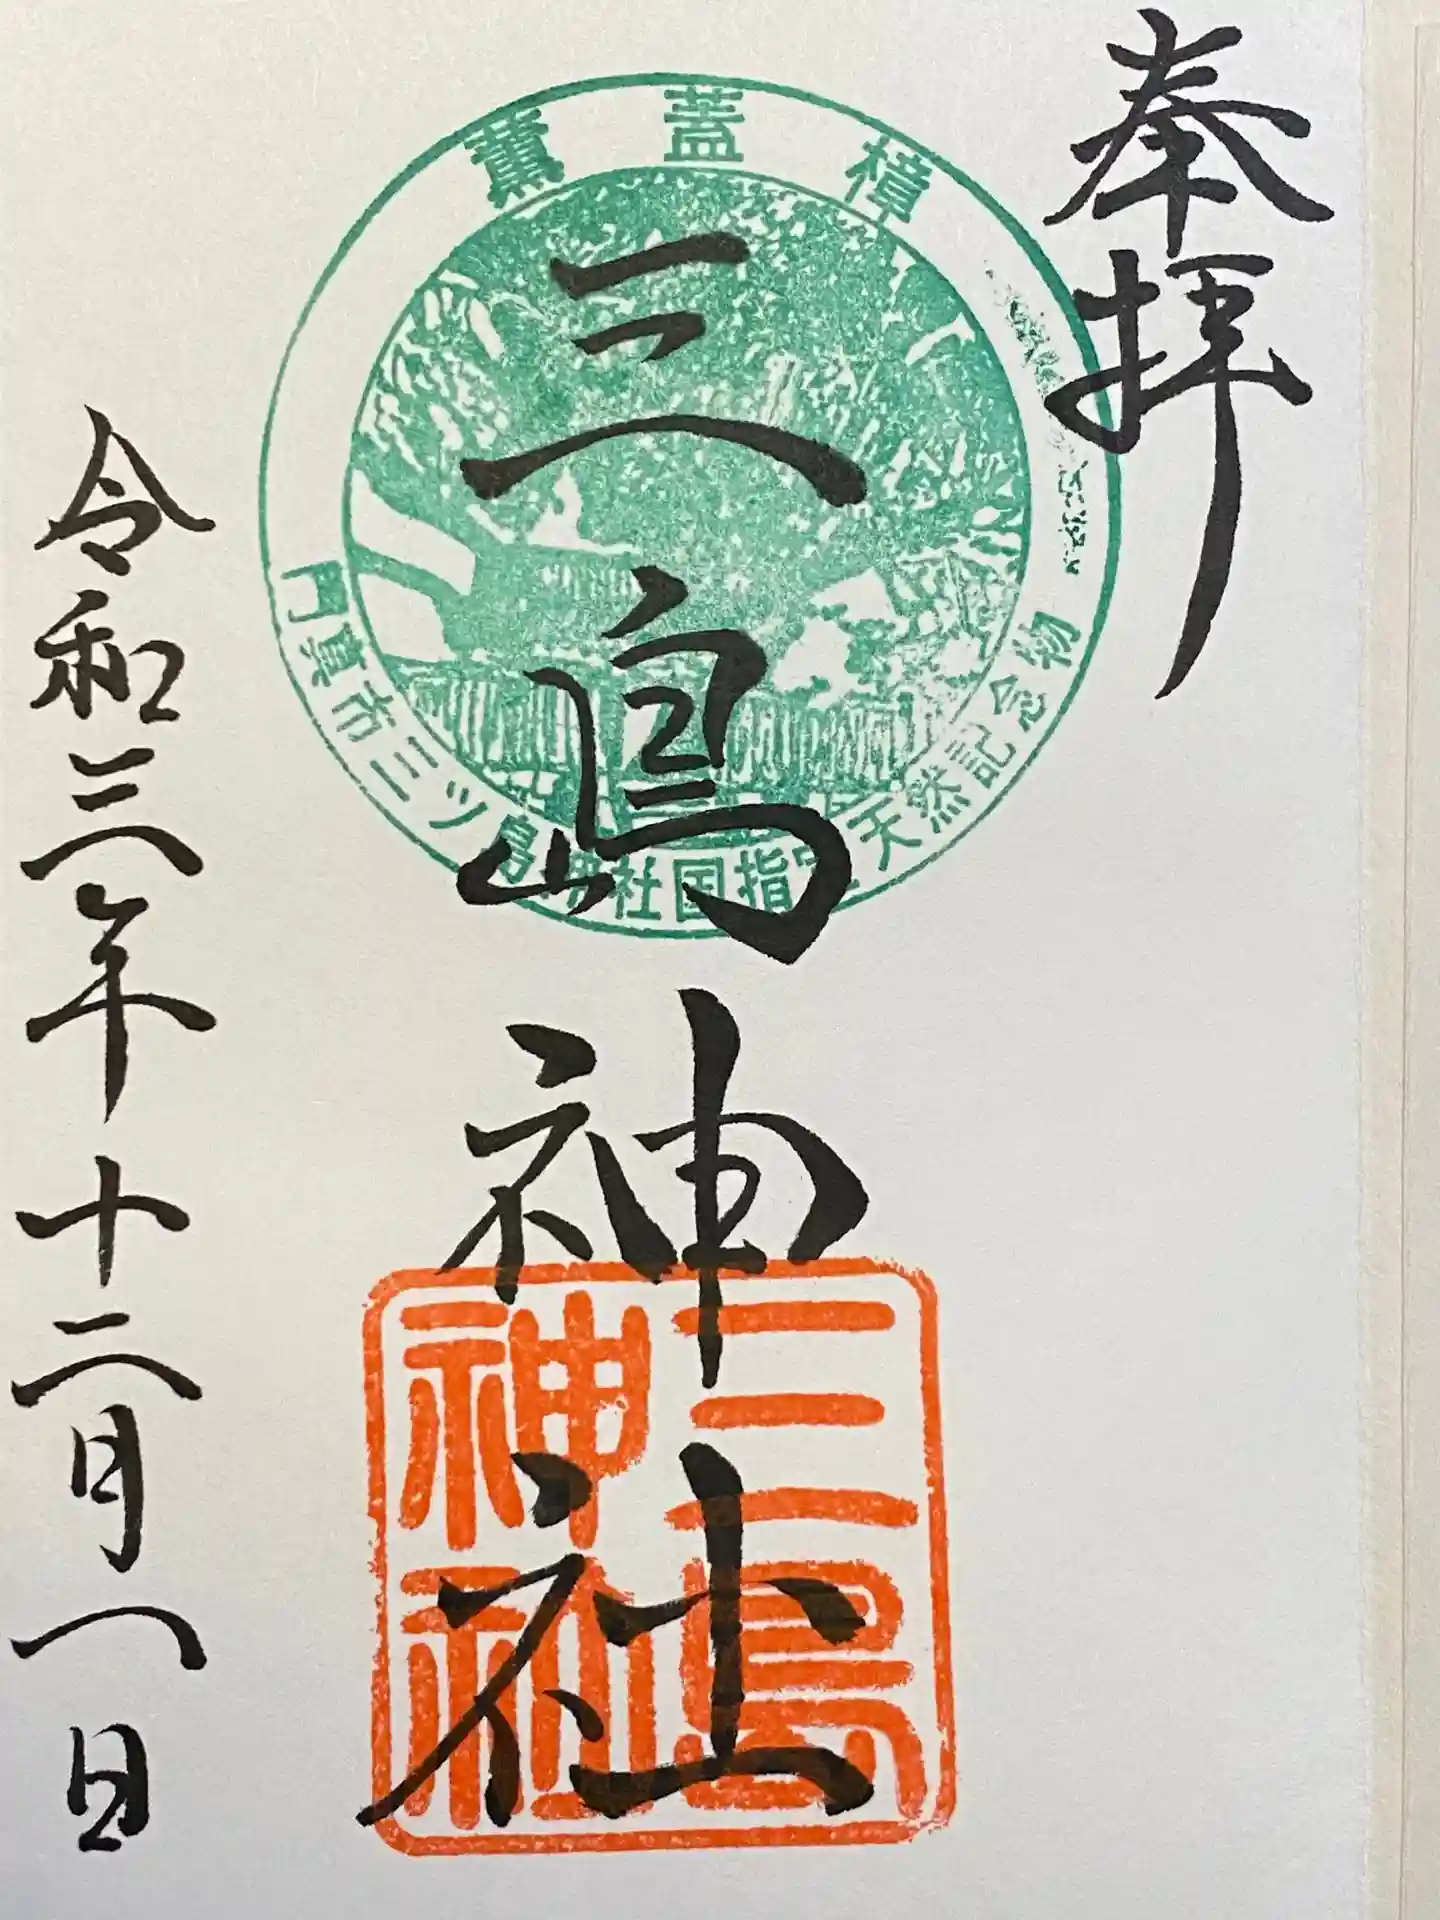 奉拝
薫蓋樟
門真市三ツ島神社国指定天然記念物
三島神社
三島
神社
令和三年十二月一日